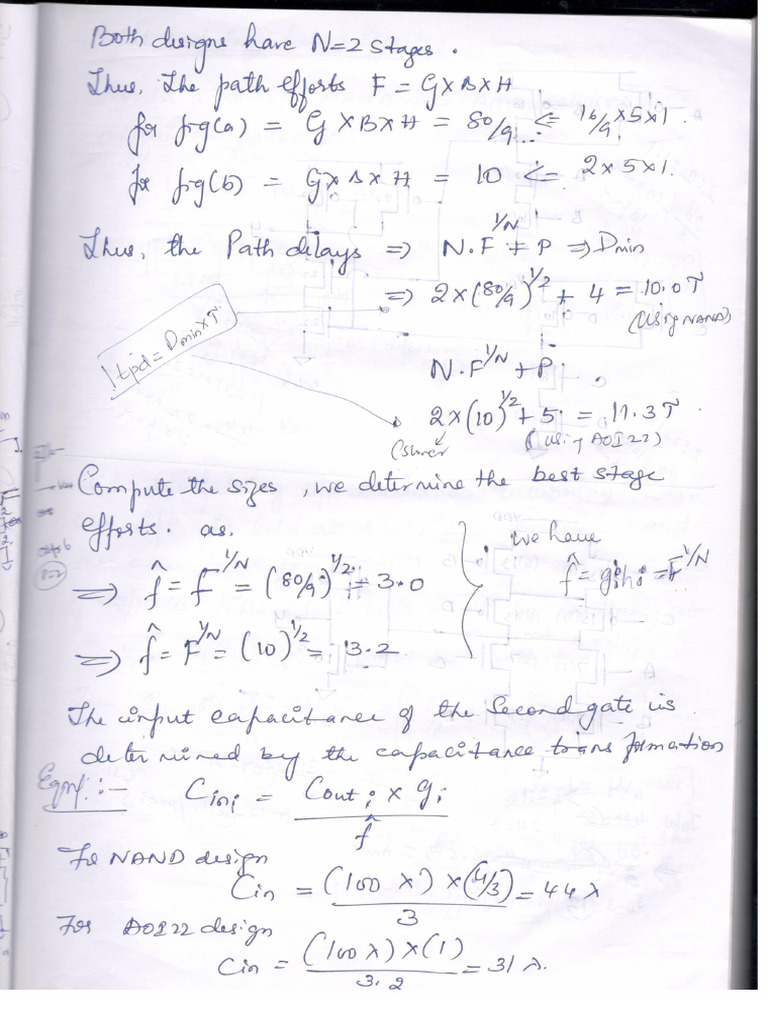 Both designs have N=2 stages.
Thus, The path efforts F = G×B×H
for fig(a) = G×B×H = 80/9 <= 16/9×5×1.
for fig(b) = G×B×H = 10 <= 2×5×1.
Thus, the Path delays => N.F^1/N + P => Dmin
=> 2×(80/9)^1/2 + 4 = 10.0 T
(Using NAND)
tpd = Dmin×T
N.F^1/N + P
2×(10)^1/2 + 5 = 11.3 T.
AOI22)
Compute the sizes, we determine the best stage
efforts. as.
we have
=> f̂ = F^1/N = (80/9)^1/2 = 3.0
f̂ = gihi = F^1/N
=> f̂ = F^1/N = (10)^1/2 = 3.2
The input capacitance of the Second gate is
determined by the capacitance transformation
Eqn :- Cini = Couti × gi / f̂
For NAND design
Cin = (100 λ) × (4/3) / 3 = 44 λ
For AOI22 design
Cin = (100 λ) × (1) / 3.2 = 31 λ.